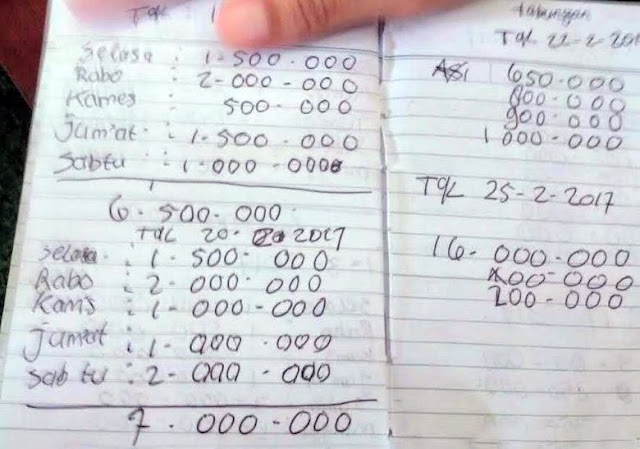 Tgl : 1
Selasa : 1-500.000
Rabo : 2-000-000
Kames : 500.000
Jum'at : 1-500.000
Sabtu : 1-000-000
6.500.000.
Tgl 20. 2017
Selasa : 1-500.000
Rabo : 2-000.000
Kams : 1-000-000
Jumat : 1-000.000
Sabtu : 2-000.000
7.000-000
Tabungan
Tgl 22-2-201
650.000
800.000
900.000
1000-000
Tgl 25-2-2017
16-000-000
400-000
200-000